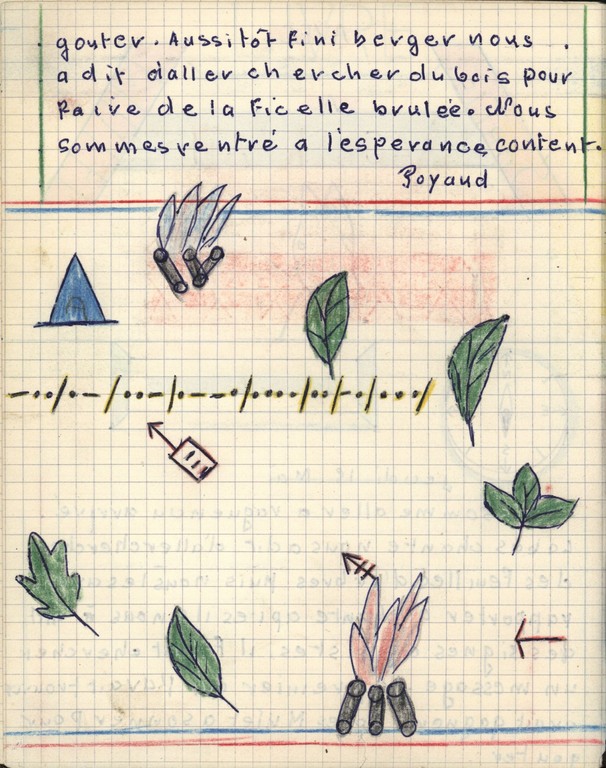 gouter. Aussitôt fini berger nous
a dit d'aller chercher du bois pour
faire de la ficelle brulée. Nous
sommes rentré a l'esperance content.
Poyaud